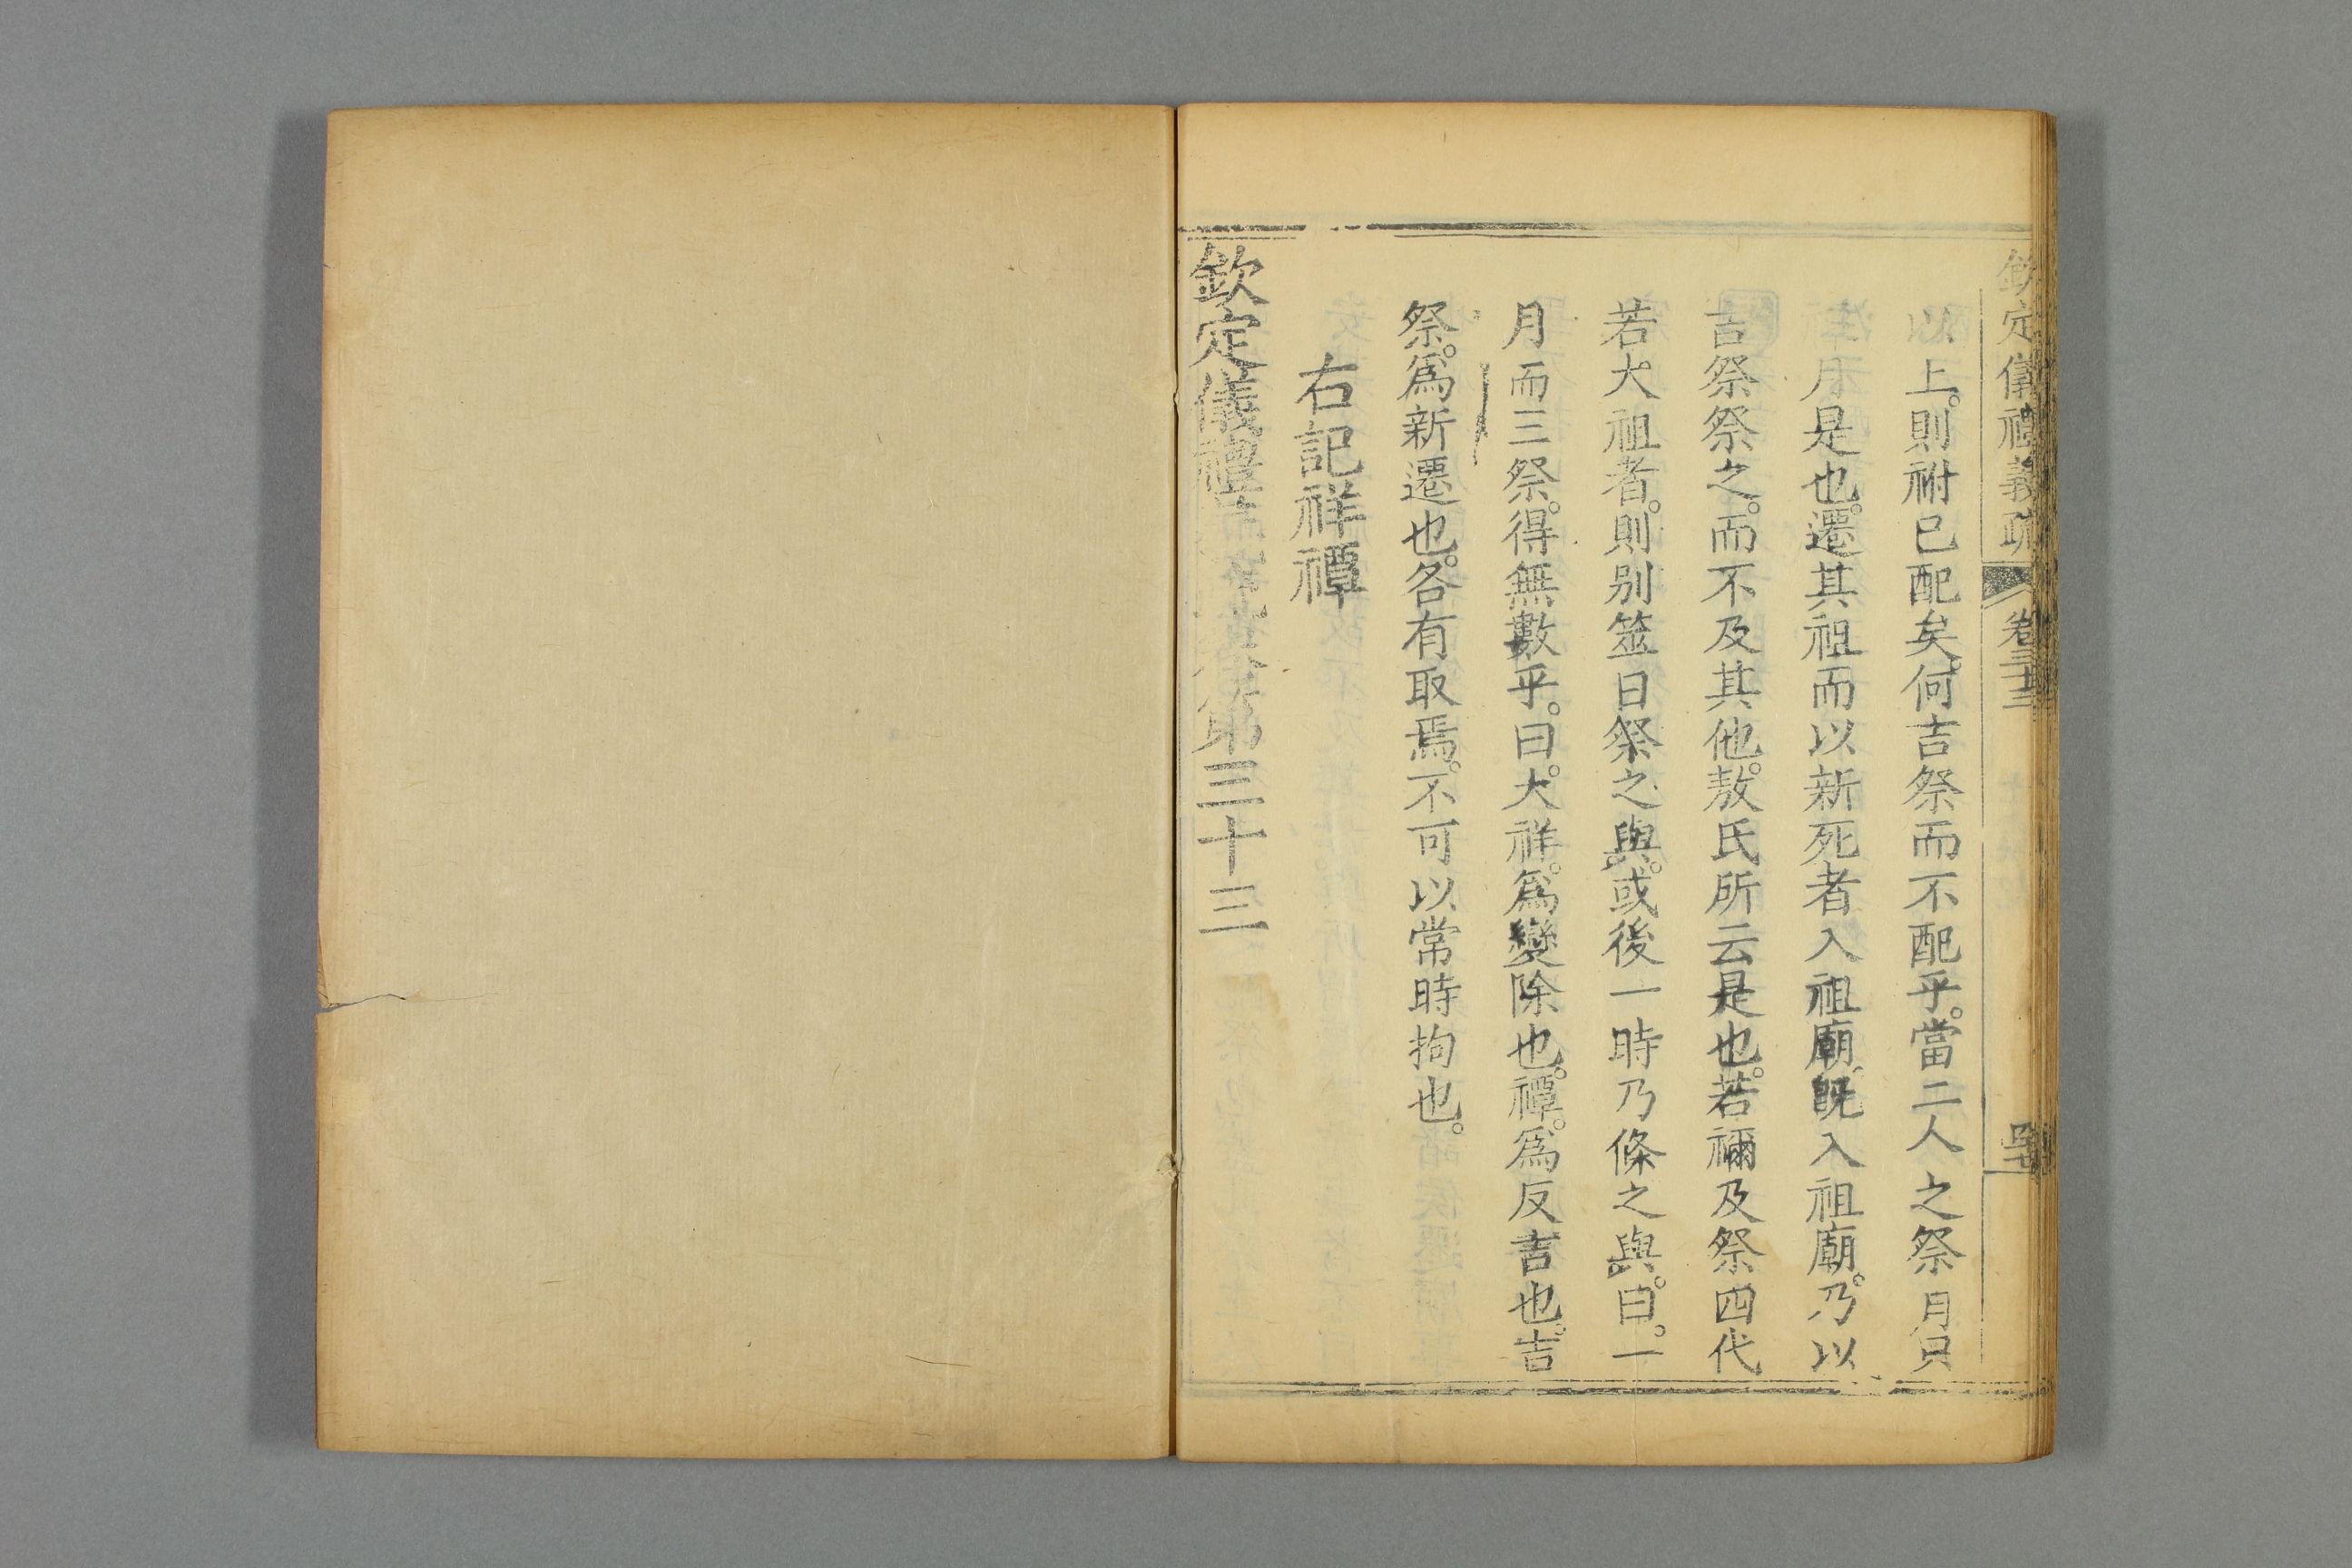 欽定儀禮義疏 卷三十三
以上。則祔已配矣。何吉祭而不配乎。當二人之祭月只
月是也。遷其祖而以新死者入祖廟。旣入祖廟。乃以
吉祭祭之。而不及其他。敖氏所云是也。若禰及祭四代
若大祖者。則别筮日祭之與。或後一時乃條之與。曰。一
月而三祭。得無數乎。曰。大祥。爲變除也。禫。爲反吉也。吉
祭。爲新遷也。各有取焉。不可以常時拘也。
右記祥禫
欽定儀禮義疏卷第三十三